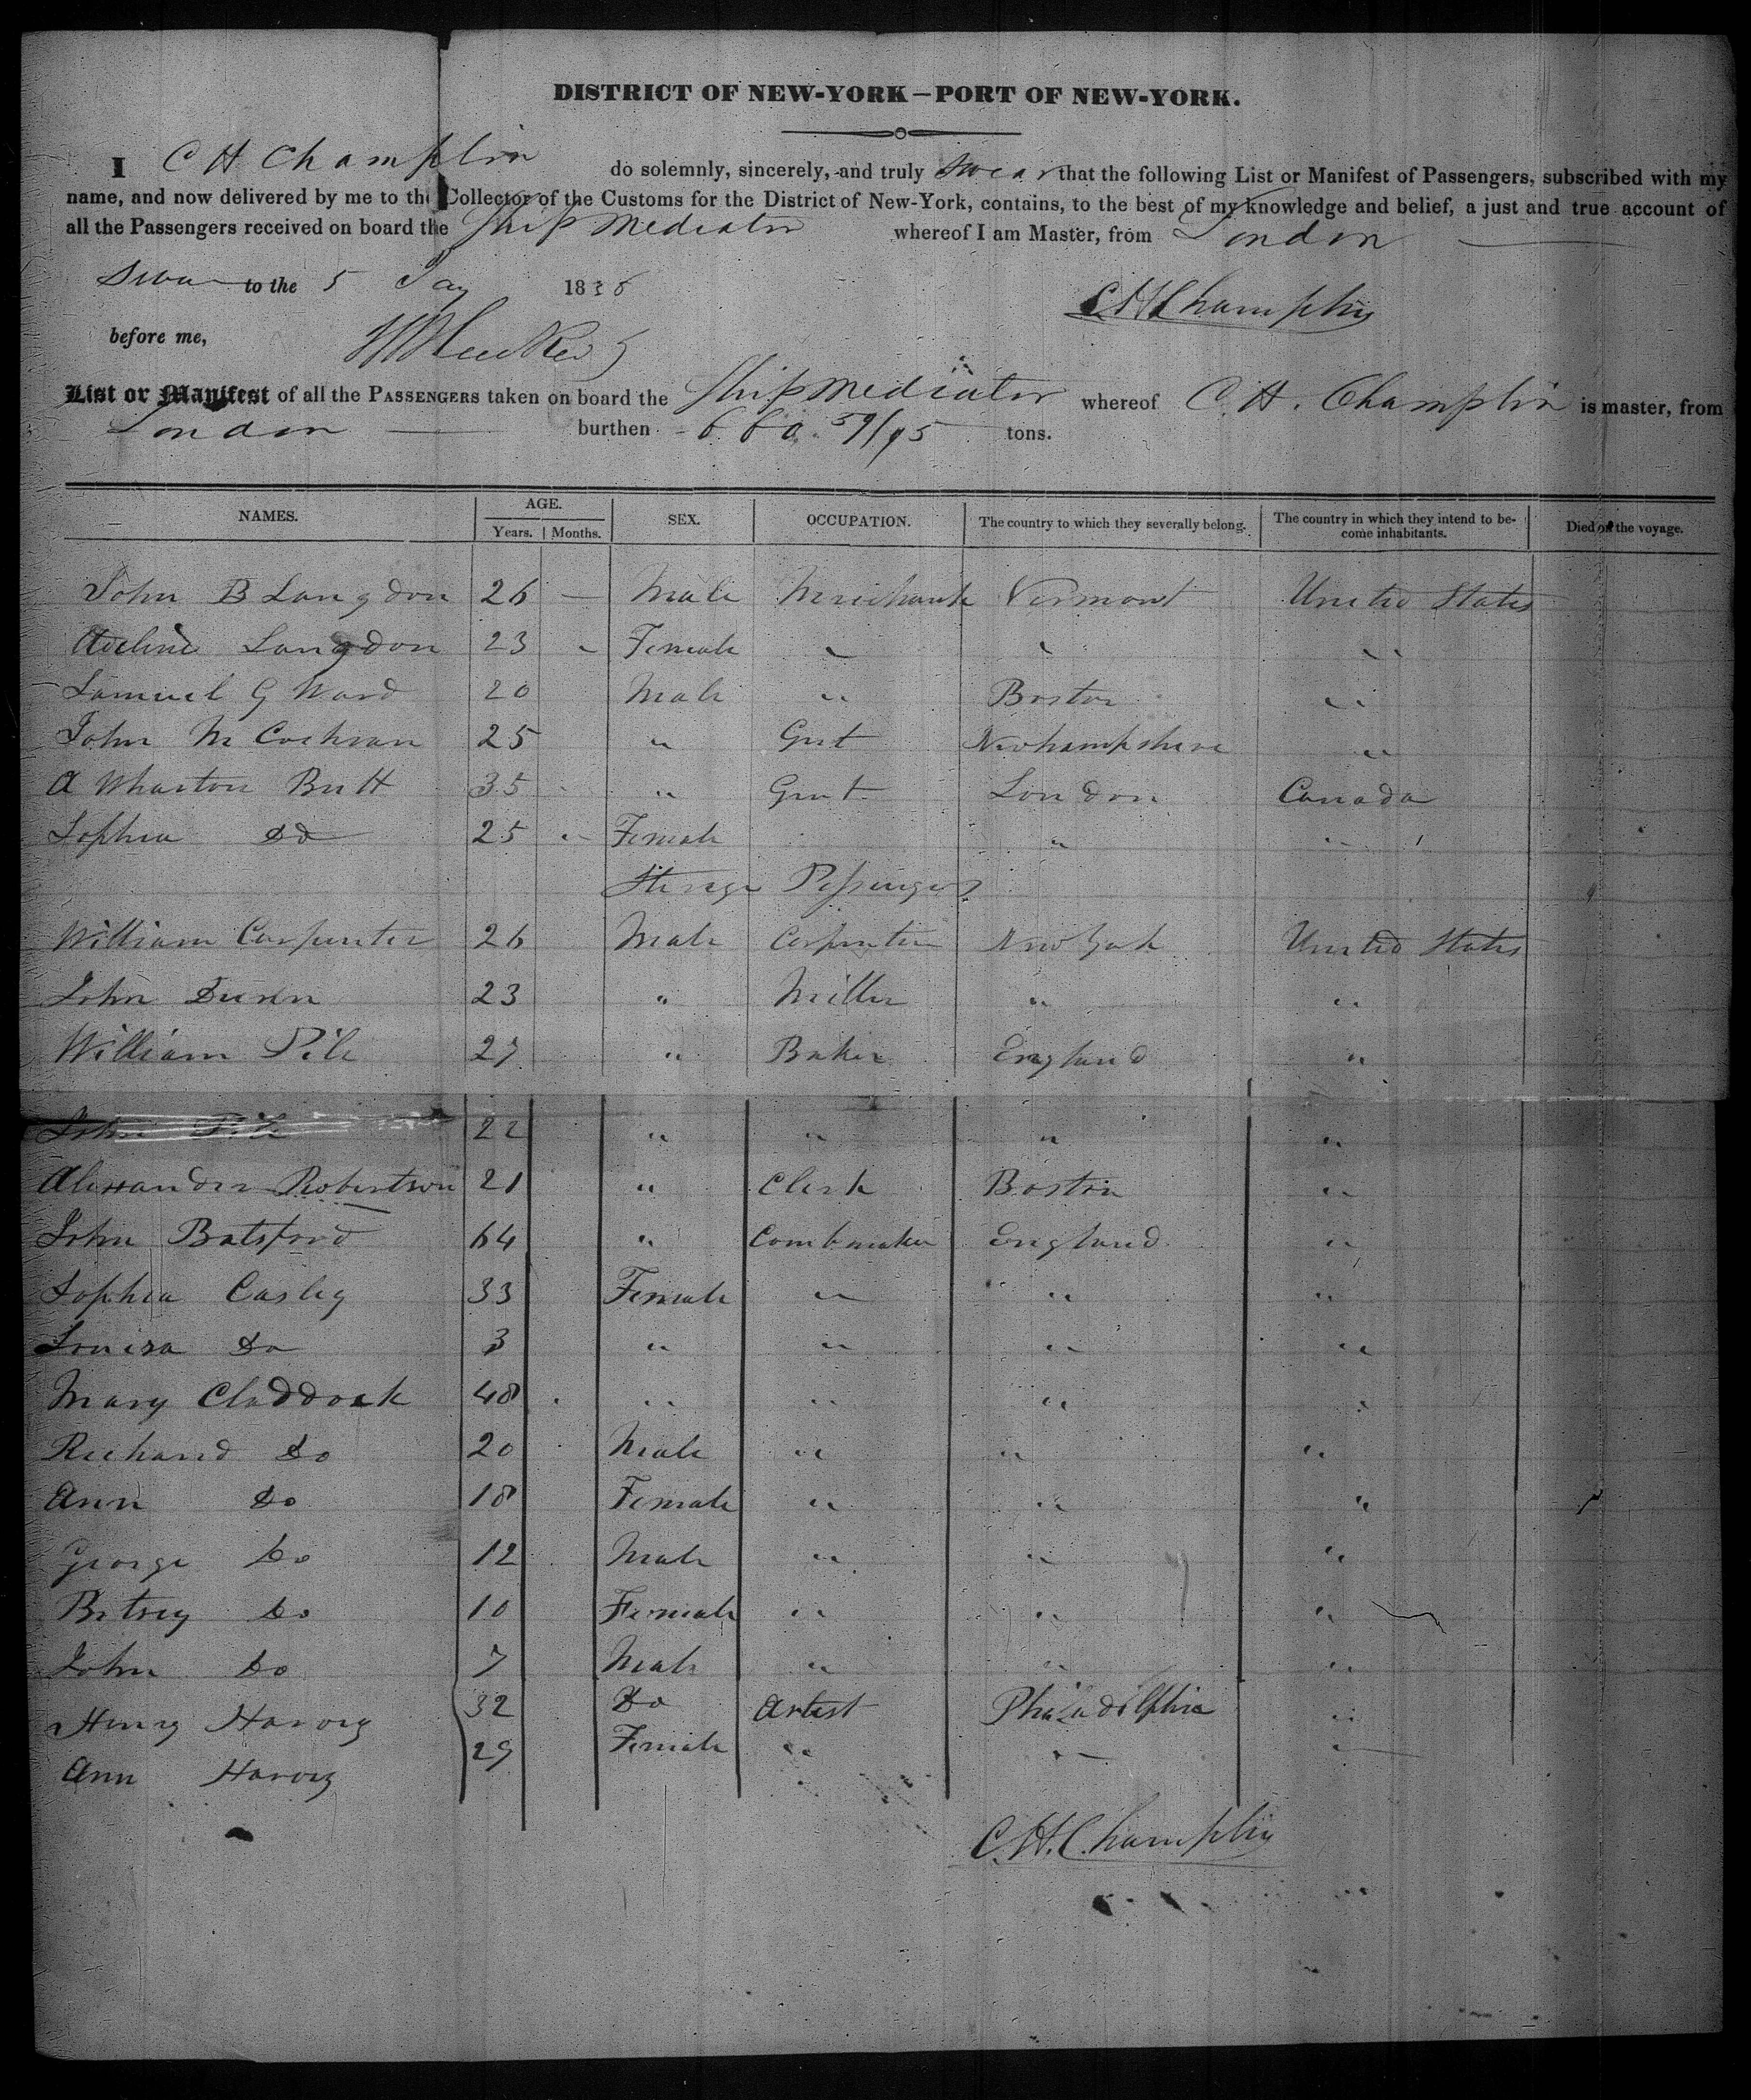 DISTRICT OF NEW-YORK—PORT OF NEW-YORK.
I C H Champlin do solemnly, sincerely, and truly swear that the following List or Manifest of Passengers, subscribed with my
name, and now delivered by me to the Collector of the Customs for the District of New-York, contains, to the best of my knowledge and belief, a just and true account of
all the Passengers received on board the Ship Mediator whereof I am Master, from London
to the 5 Jay 1836
C H Champlin
before me,
List or Manifest of all the PASSENGERS taken on board the Ship Mediator whereof C. H. Champlin is master, from
London burthen 660 59/95 tons.
NAMES. AGE. Years. Months. SEX. OCCUPATION. The country to which they severally belong. The country in which they intend to become inhabitants. Died on the voyage.
John B Langdon 26 — Male Merchant Vermont United States
Adeline Langdon 23 " Female " " "
Samuel G Ward 20 Male " Boston "
John M Cochran 25 " Gent Newhampshire "
A Wharton Butt 35 " Gent London Canada
Sophia Do 25 " Female " "
Sterage Passengers
William Carpenter 26 Male Carpenter New York United States
John Dunn 23 " Miller " "
William Pile 27 " Baker England "
John Pile 22 " " " "
Alexander Robertson 21 " Clerk Boston "
John Batsford 64 " Combmaker England "
Sophia Casley 33 Female " " "
Louisa Do 3 " " " "
Mary Claddoak 48 " " " "
Richard Do 20 Male " " "
Ann Do 18 Female " " "
George Do 12 Male " " "
Betsey Do 10 Female " " "
John Do 7 Male " " "
Henry Harvey 32 Do Artist Philadelphia "
Ann Harvey 29 Female " " "
C. H. Champlin